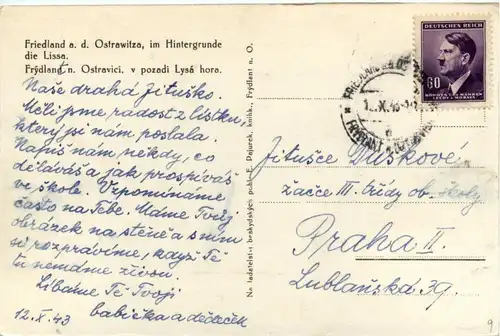 Friedland a. d. Ostrawitza, im Hintergrunde
die Lissa.
Frýdlant n. Ostravici, v pozadí Lysá hora.
Naše drahá Jituško.
Měli jsme radost z lístku,
který jsi nám poslala.
Napiš nám někdy, co
děláváš a jak prospíváš
ve škole. Vzpomínáme
často na Tebe. Máme Tvůj
obrázek na stěně a s ním
si rozprávíme, když Tě
tu nemáme živou.
Líbáme Tě Tvoji
babička a dědeček
12.X.43
Nakladatelství beskydských pohl. F. Pajurek, knihk., Frýdlant n. O.
60
BÖHMEN UND MÄHREN
ČECHY A MORAVA
Jitušce Duškové
žačce III. třídy ob. školy
Praha II.
Lublaňská 39.